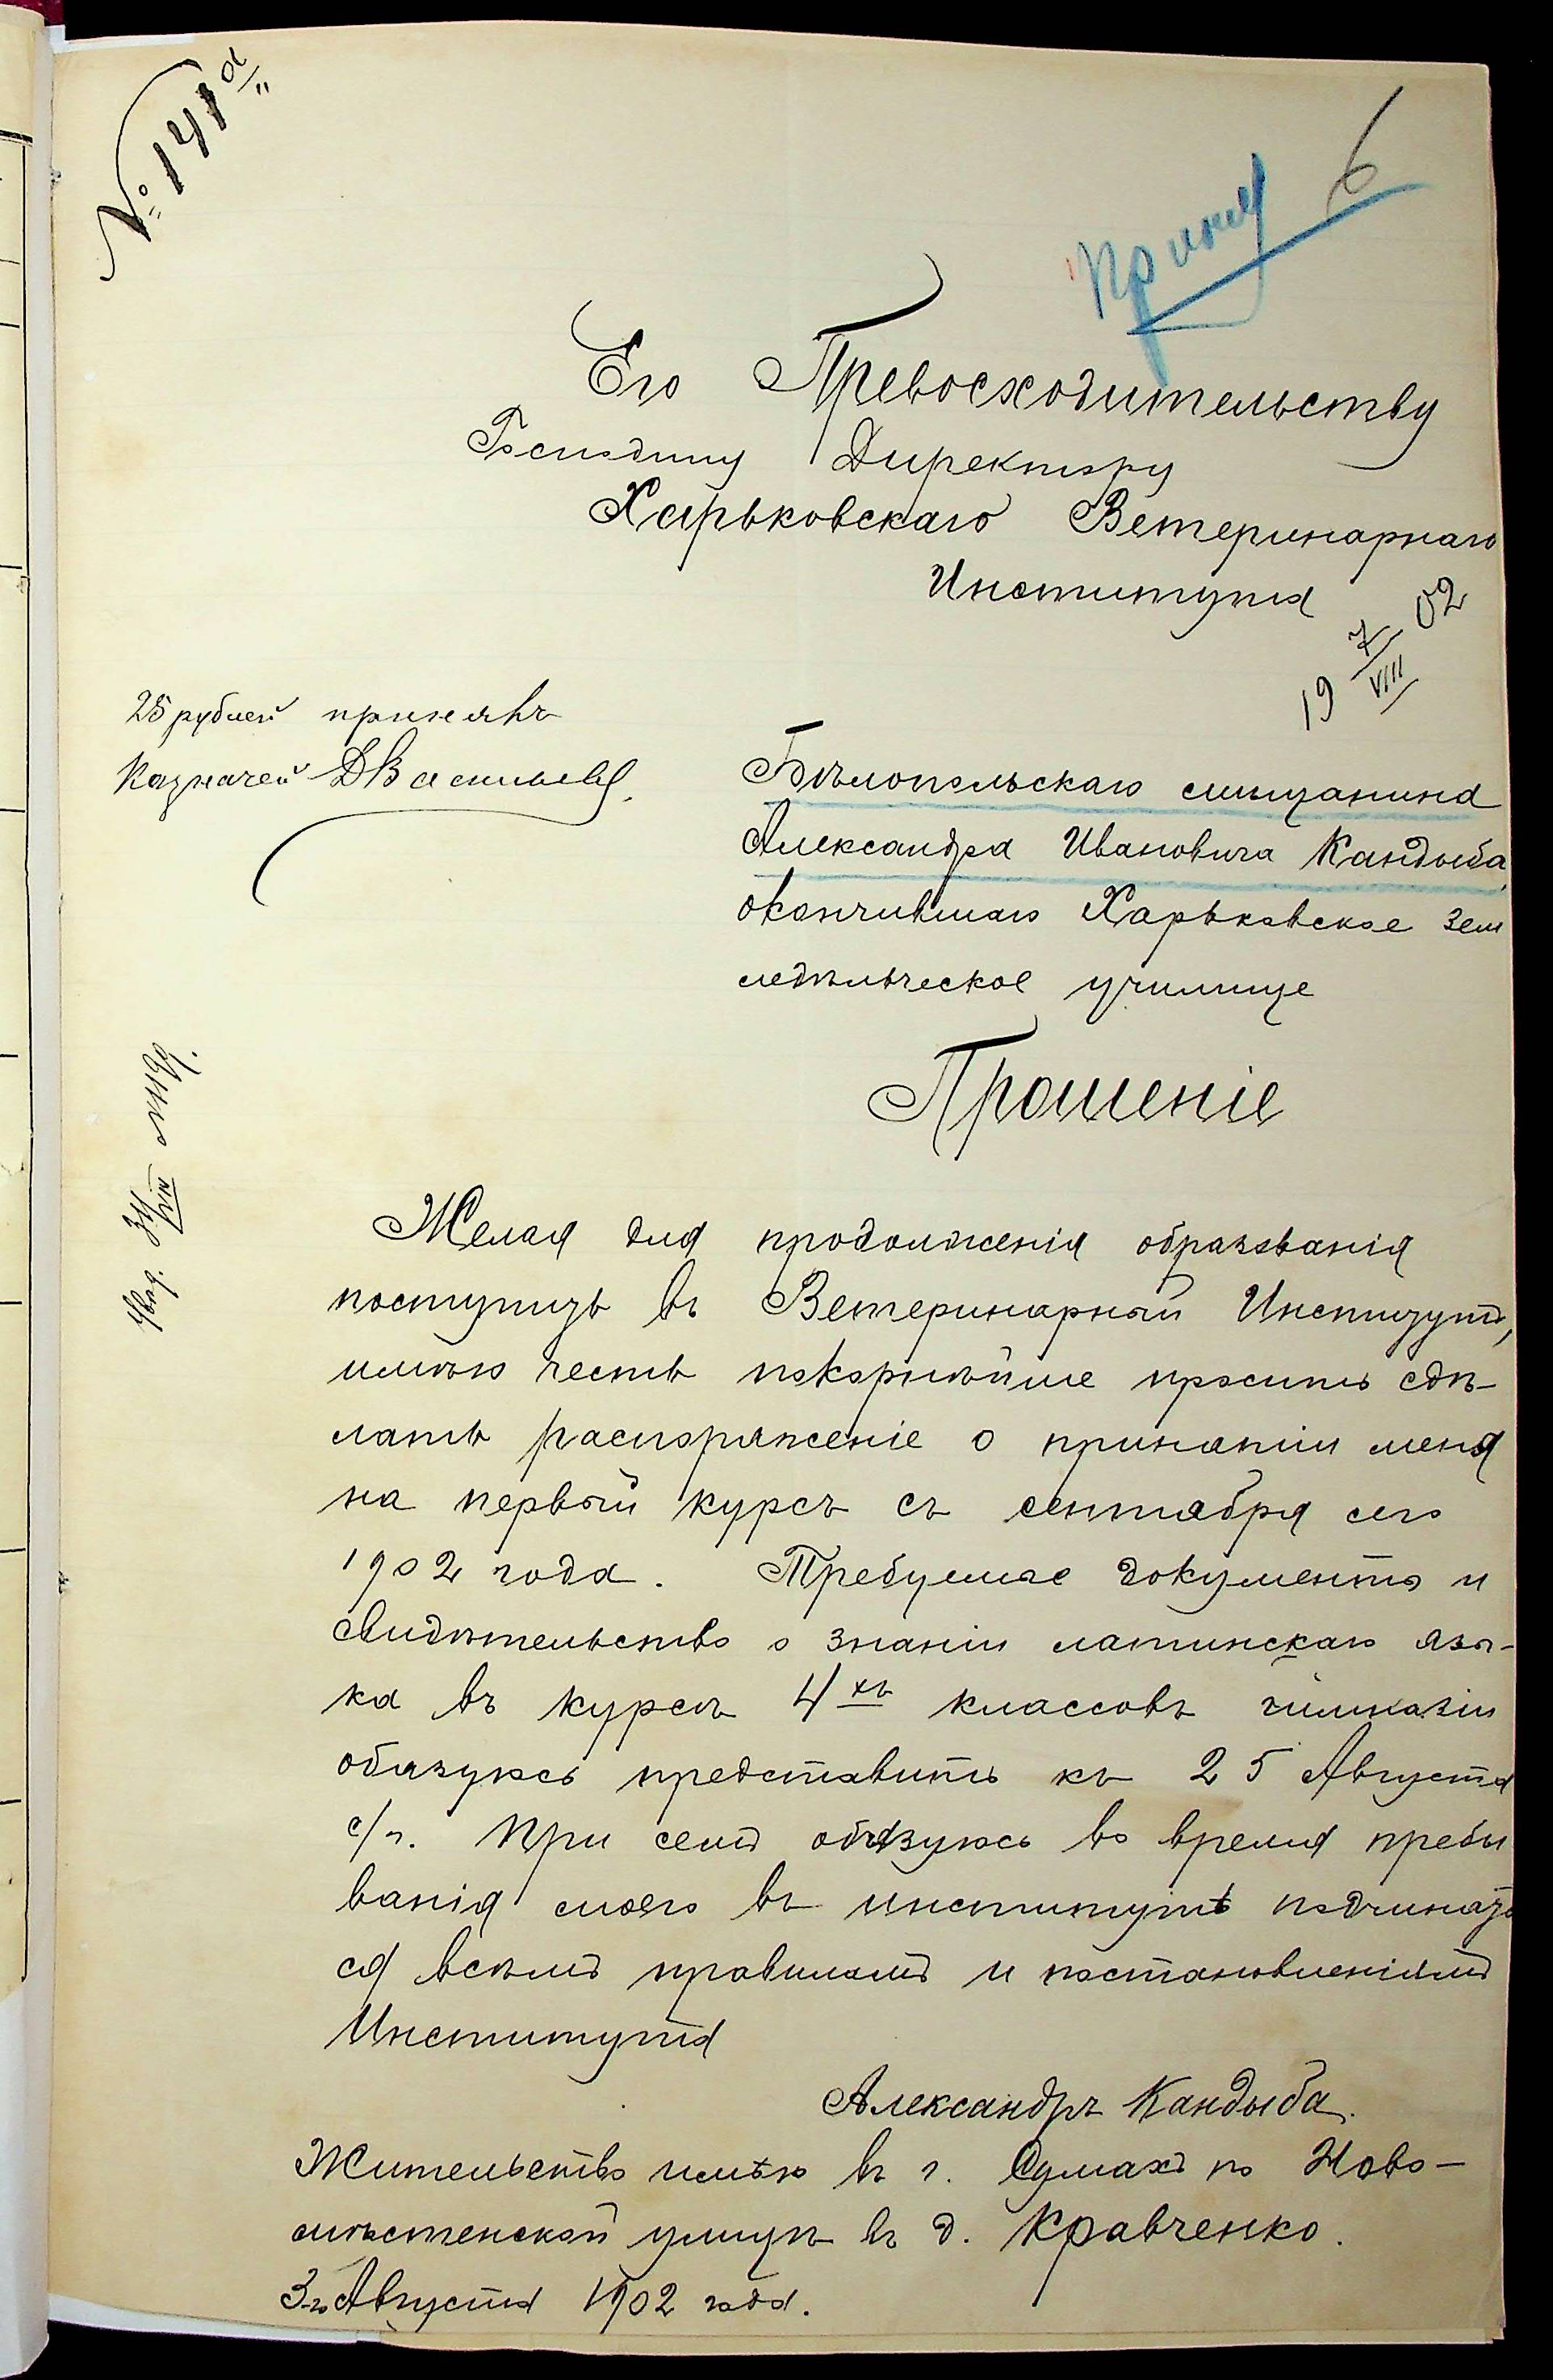 № 141а
6
Приня
Его Превосходительству
Господину Директору
Харьковскаго Ветеринарнаго
Института
19 7/VIII 02
25 рублей принялъ
Казначей ДВасильевъ
Бѣлопольскаго мѣщанина
Александра Ивановича Кандыба,
окончившаго Харьковское Зем
ледѣльческое училище
Прошеніе
Желая для продолженія образованія
поступить въ Ветеринарный Институтъ,
имѣю честь покорнѣйше просить сдѣ-
лать распоряженіе о принятіи меня
на первый курсъ съ сентября сего
1902 года. Требуемые документы и
свидѣтельство о знаніи латинскаго язы-
ка въ курсѣ 4хъ классовъ гимназіи
обязуюсь представить къ 25 Августа
с/г. При семъ обязуюсь во время пребы
ванія моего въ институтѣ подчинять
ся всѣмъ правиламъ и постановленіямъ
Института
Александръ Кандыба.
Жительство имѣю въ г. Сумахъ по Ново-
мѣстенской улицѣ въ д. Кравченко.
3-го Августа 1902 года.